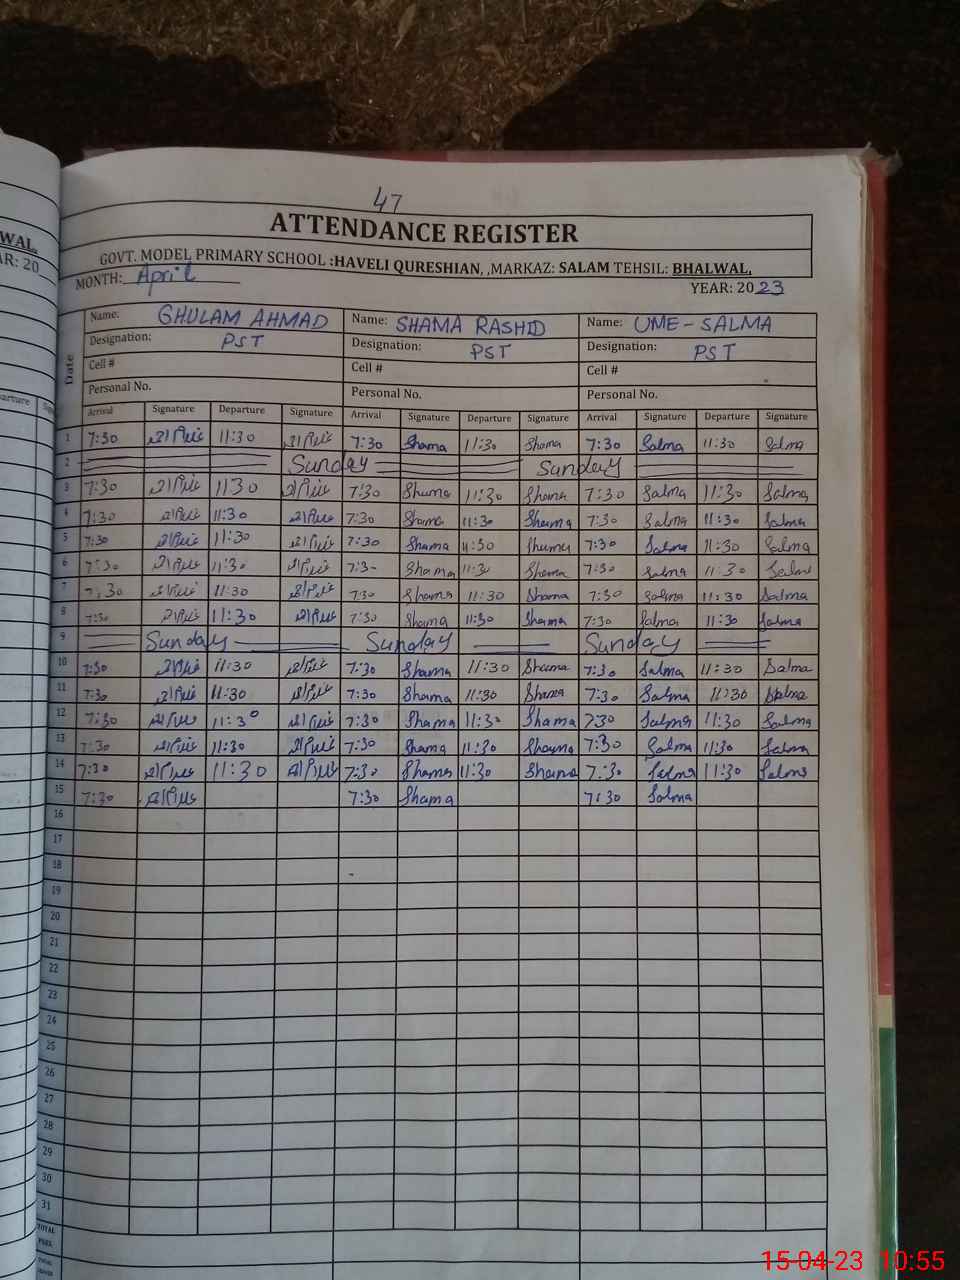 WAL,
AR: 20
arture
47
ATTENDANCE REGISTER
GOVT. MODEL PRIMARY SCHOOL :HAVELI QURESHIAN, ,MARKAZ: SALAM TEHSIL: BHALWAL,
MONTH: April YEAR: 2023
Date Name: GHULAM AHMAD Name: SHAMA RASHID Name: UME-SALMA
Designation: PST Designation: PST Designation: PST
Cell # Cell # Cell #
Personal No. Personal No. Personal No.
Arrival Signature Departure Signature Arrival Signature Departure Signature Arrival Signature Departure Signature
1 7:30 11:30 7:30 Shama 11:30 Shama 7:30 Salma 11:30 Salma
2 Sunday Sunday
3 7:30 1130 7:30 Shama 11:30 Shama 7:30 Salma 11:30 Salma
4 7:30 11:30 7:30 Shama 11:30 Shama 7:30 Salma 11:30 Salma
5 7:30 11:30 7:30 Shama 11:30 Shama 7:30 Salma 11:30 Salma
6 7:30 11:30 7:3- Shama 11:3 Shama 7:30 Salma 11:30 Salma
7 7:30 11:30 7:30 Shama 11:30 Shama 7:30 Salma 11:30 Salma
8 7:30 11:30 7:30 Shama 11:30 Shama 7:30 Salma 11:30 Salma
9 Sunday Sunday Sunday
10 7:30 11:30 7:30 Shama 11:30 Shama 7:30 Salma 11:30 Salma
11 7:30 11:30 7:30 Shama 11:30 Shama 7:30 Salma 11:30 Salma
12 7:30 11:30 7:30 Shama 11:30 Shama 730 Salma 11:30 Salma
13 7:30 11:30 7:30 Shama 11:30 Shama 7:30 Salma 11:30 Salma
14 7:30 11:30 7:30 Shama 11:30 Shama 7:30 Salma 11:30 Salma
15 7:30 7:30 Shama 7:30 Salma
16
17
18
19
20
21
22
23
24
25
26
27
28
29
30
31
TOTAL
15-04-23 10:55